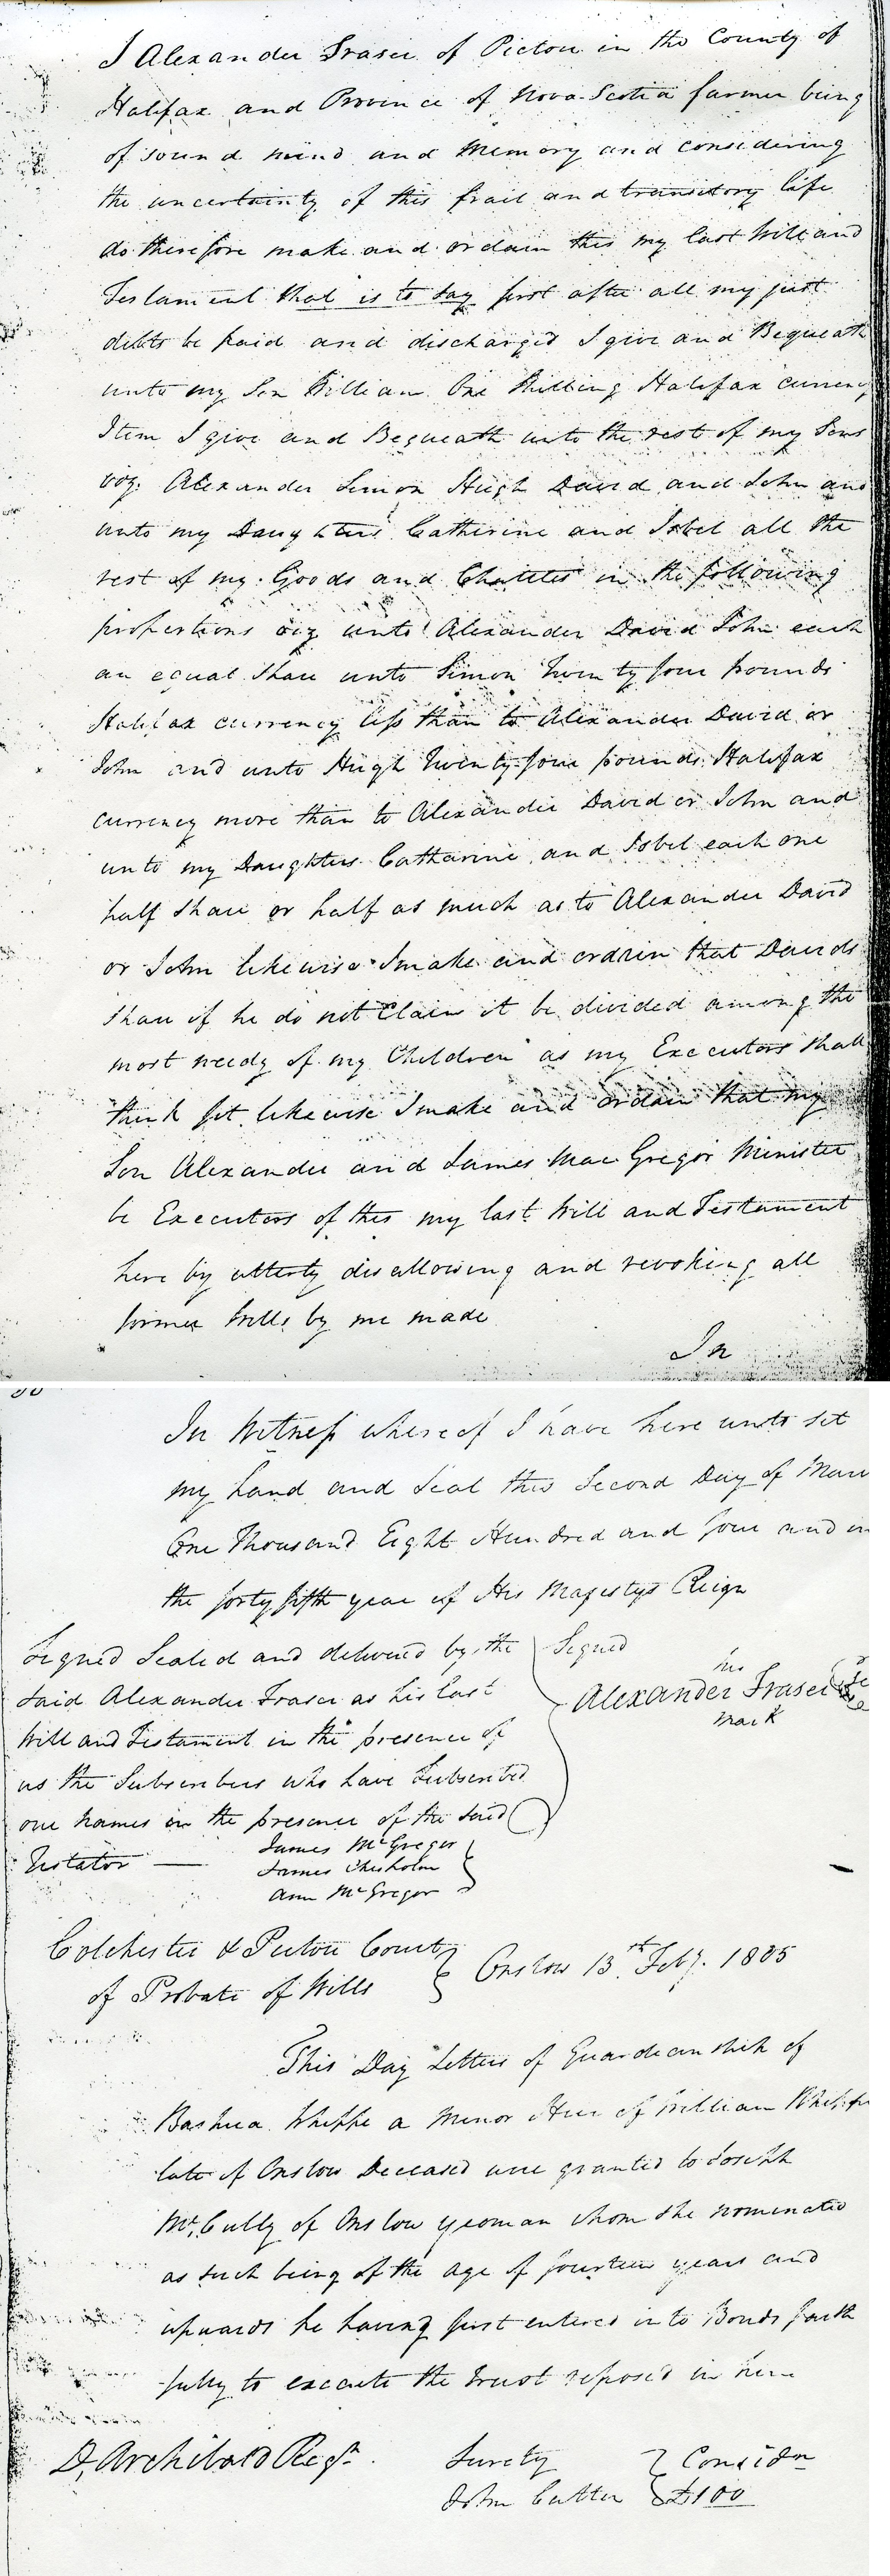 I Alexander Fraser of Pictou in the County of
Halifax and Province of Nova-Scotia farmer being
of sound mind and Memory and considering
the uncertainty of this frail and transitory life
do therefore make and ordain this my last Will and
Testament that is to say first after all my just
debts be paid and discharged I give and Bequeath
unto my Son William One Shilling Halifax currency
Item I give and Bequeath unto the rest of my Sons
viz. Alexander Simon Hugh David and John and
unto my Daughters Catherine and Isbel all the
rest of my Goods and Chatteles in the following
proportions viz unto Alexander David John each
an equal Share unto Simon Twenty four pounds
Halifax currency less than to Alexander David or
John and unto Hugh Twenty four pounds Halifax
currency more than to Alexander David or John and
unto my Daughters Catharine and Isbel each one
half Share or half as much as to Alexander David
or John likewise I make and ordain that Davids
Share if he do not Claim it be divided among the
most needy of my Children as my Executors Shall
think fit likewise I make and ordain that my
Son Alexander and James MacGregor Minister
be Executors of this my last Will and Testament
here by utterly disallowing and revoking all
former Wills by me made
In
In Witness whereof I have here unto set
my hand and Seal this Second Day of
One Thousand Eight Hundred and four and in
the forty fifth year of His Majestys Reign
Signed Sealed and delivered by the
said Alexander Fraser as his last
Will and Testament in the presence of
us the Subscribers who have Subscribed
our names in the presence of the said
Testator —
Signed
his
Alexander Fraser
mark
James McGregor
James Chisholm
Ann McGregor
Colchester & Pictou Court
of Probate of Wills
Onslow 13th Feby. 1805
This Day Letters of Guardianship of
Bashua Whippe a Minor Heir of William
late of Onslow Deceased were granted to Joseph
McCully of Onslow yeoman whom she nominated
as such being of the Age of fourteen years and
upwards he having first entered into Bonds faith
fully to execute the trust reposed in him
D, Archibald Regr.
Surety
John Cutten
Considn
£100